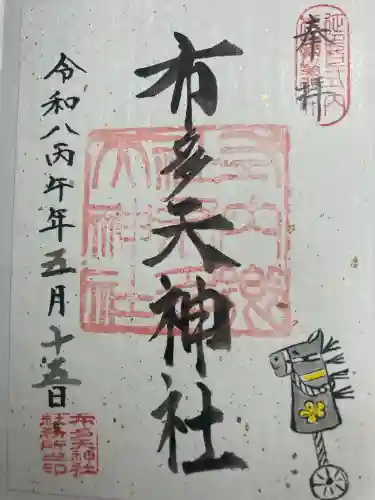 奉拝
布多天神社
令和八丙午年五月十五日
布多天神社
社務所之印